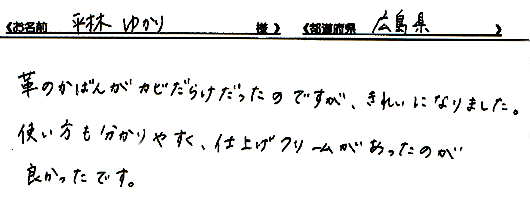 《お名前 平林 ゆかり 様》 《都道府県 広島県 》
革のかばんがカビだらけだったのですが、きれいになりました。
使い方も分かりやすく、仕上げクリームがあったのが
良かったです。